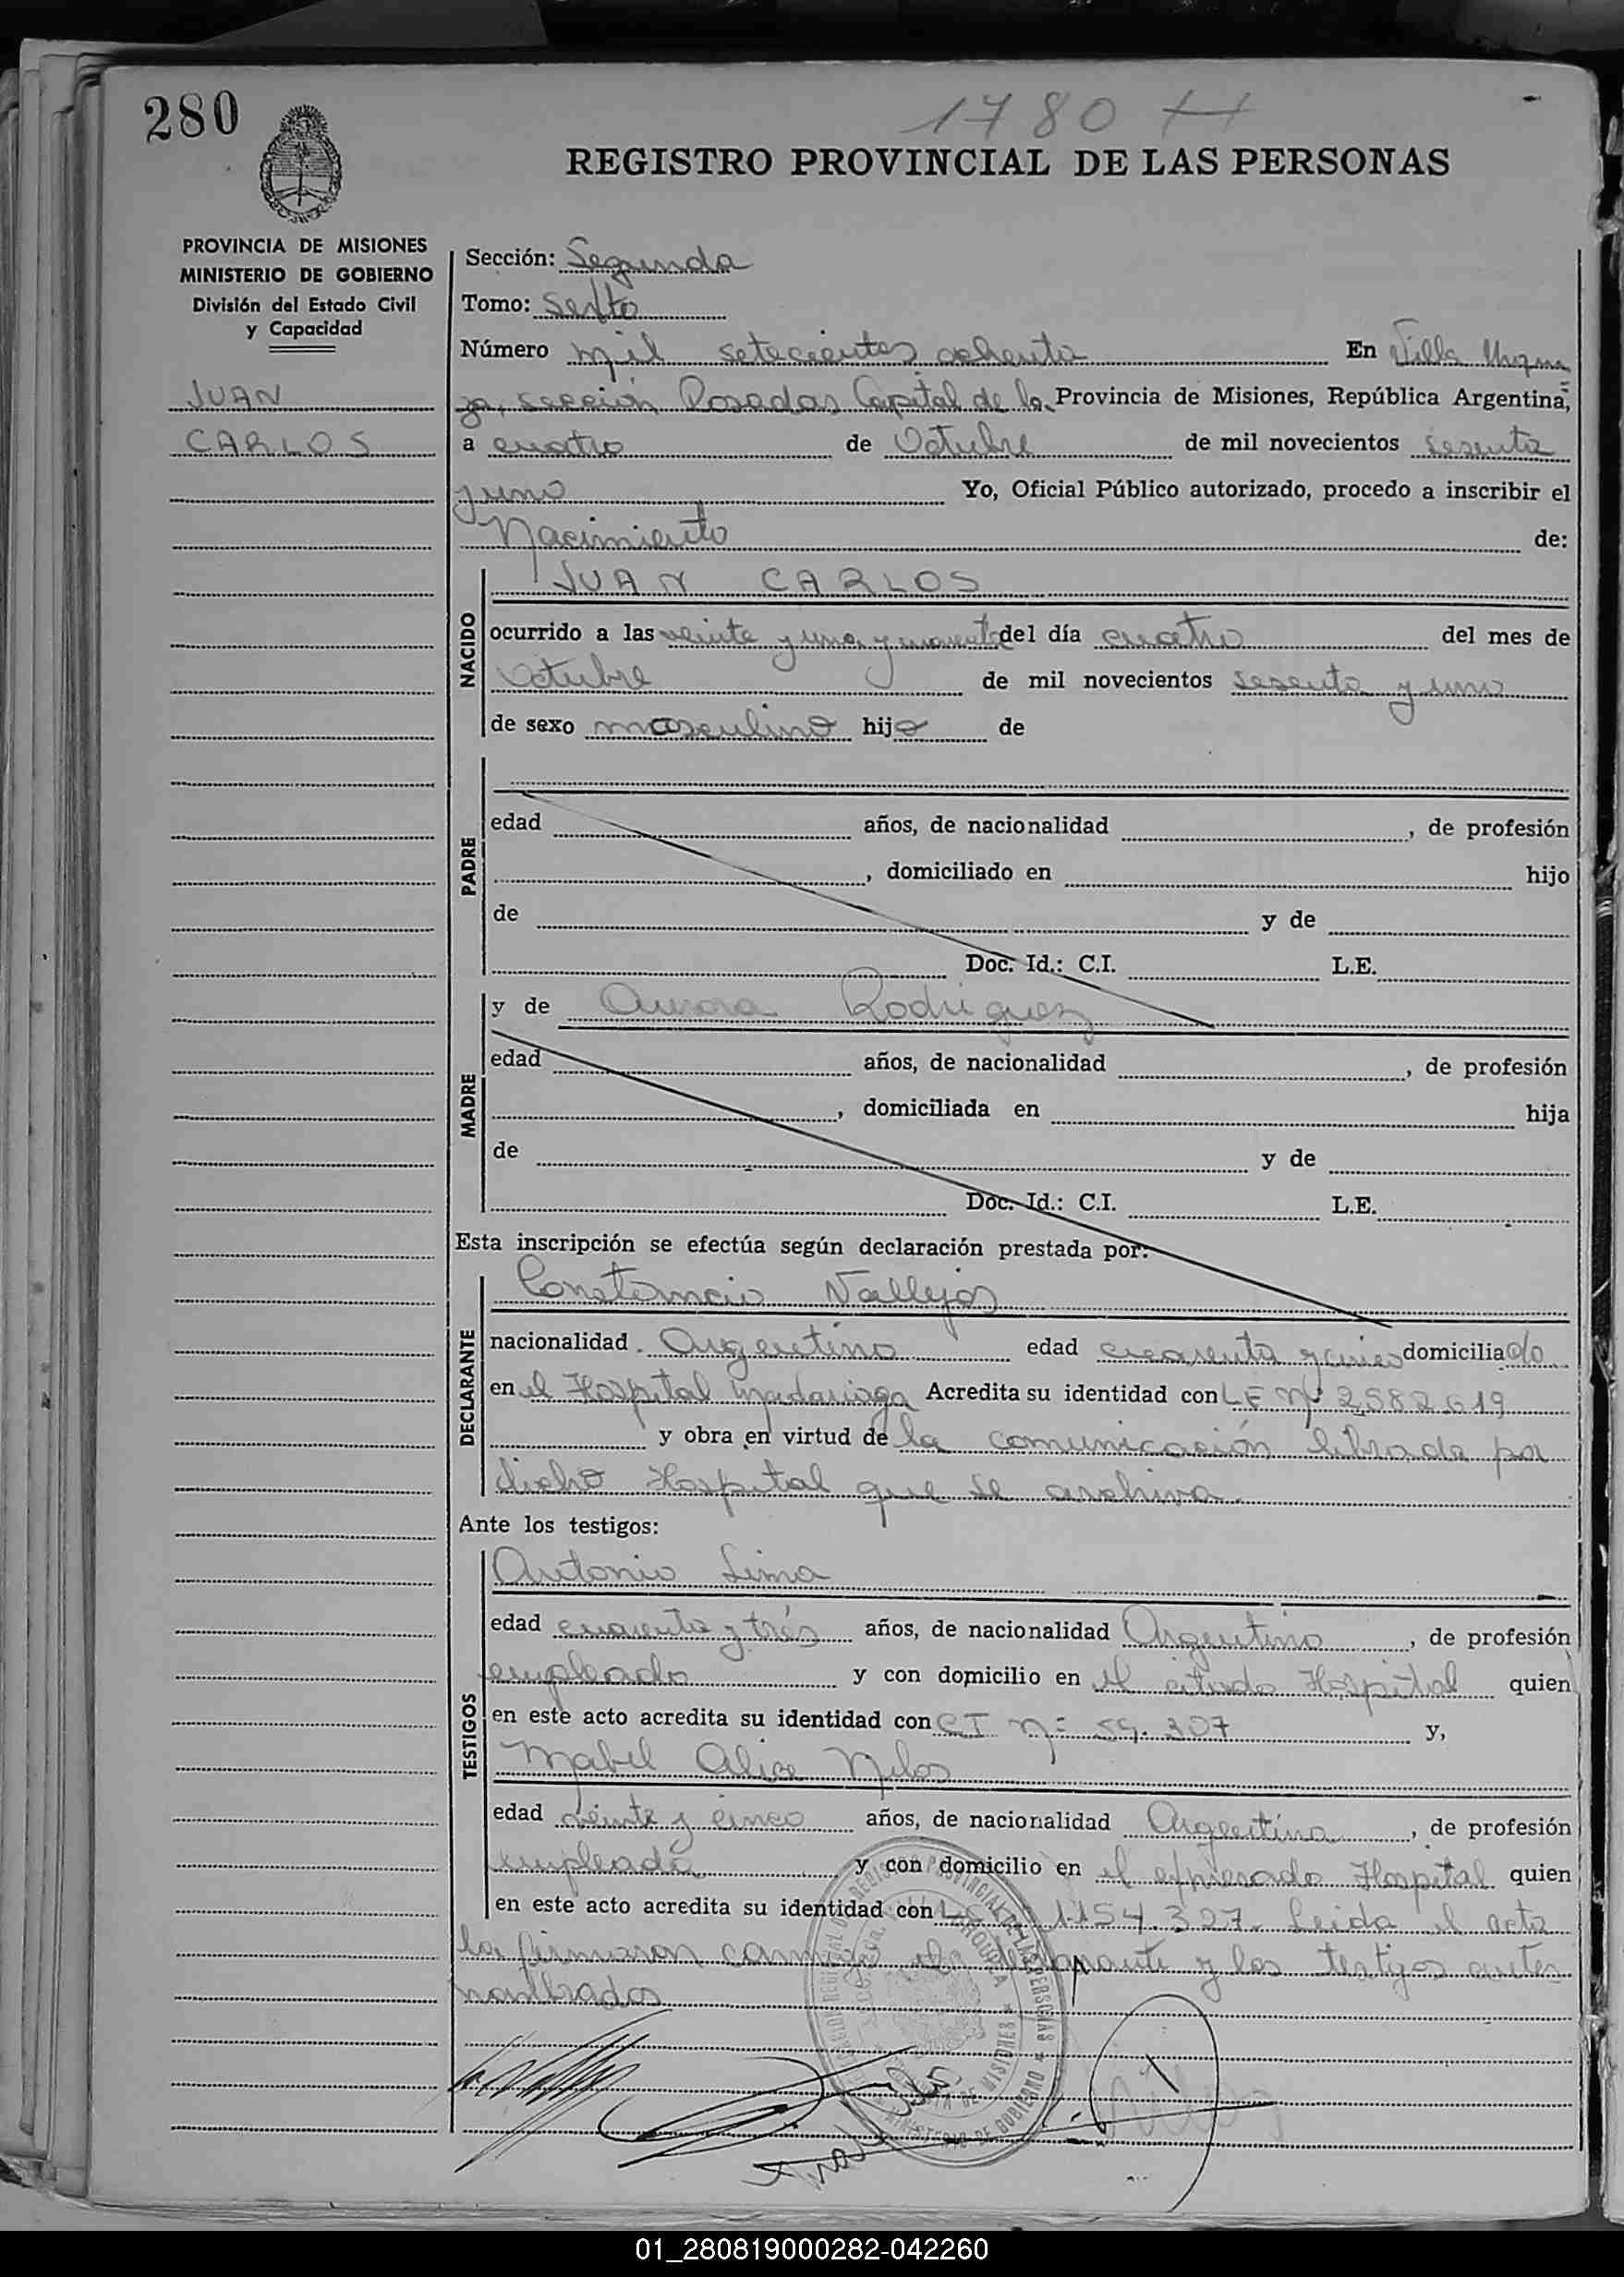 280
1780 H
REGISTRO PROVINCIAL DE LAS PERSONAS
PROVINCIA DE MISIONES
MINISTERIO DE GOBIERNO
División del Estado Civil
y Capacidad
JUAN
CARLOS
Sección: Segunda
Tomo: Sexto
Número mil setecientos ochenta En Villa Urqui
za, sección Posadas Capital de la Provincia de Misiones, República Argentina,
a cuatro de Octubre de mil novecientos sesenta
y uno Yo, Oficial Público autorizado, procedo a inscribir el
Nacimiento de:
NACIDO
JUAN CARLOS
ocurrido a las veinte y una y cuarenta del día cuatro del mes de
Octubre de mil novecientos sesenta y uno
de sexo masculino hijo de
PADRE
edad años, de nacionalidad , de profesión
, domiciliado en hijo
de y de
Doc. Id.: C.I. L.E.
MADRE
y de Aurora Rodriguez
edad años, de nacionalidad , de profesión
, domiciliada en hija
de y de
Doc. Id.: C.I. L.E.
Esta inscripción se efectúa según declaración prestada por:
DECLARANTE
Constancio Vallejos
nacionalidad Argentino edad cuarenta y cinco domiciliado
en el Hospital Madariaga Acredita su identidad con LE Nº 2.582.619
y obra en virtud de la comunicación librada por
dicho Hospital que se archiva
Ante los testigos:
TESTIGOS
Antonio Lima
edad cuarenta y trés años, de nacionalidad Argentino , de profesión
empleado y con domicilio en el citado Hospital quien
en este acto acredita su identidad con CI Nº 59.307 y,
Mabel Alice
edad veinte y cinco años, de nacionalidad Argentina , de profesión
empleada y con domicilio en el expresado Hospital quien
en este acto acredita su identidad con 1154.327. Leida el acta
la firmaron conmigo el declarante y los testigos antes
nombrados
01_280819000282-042260